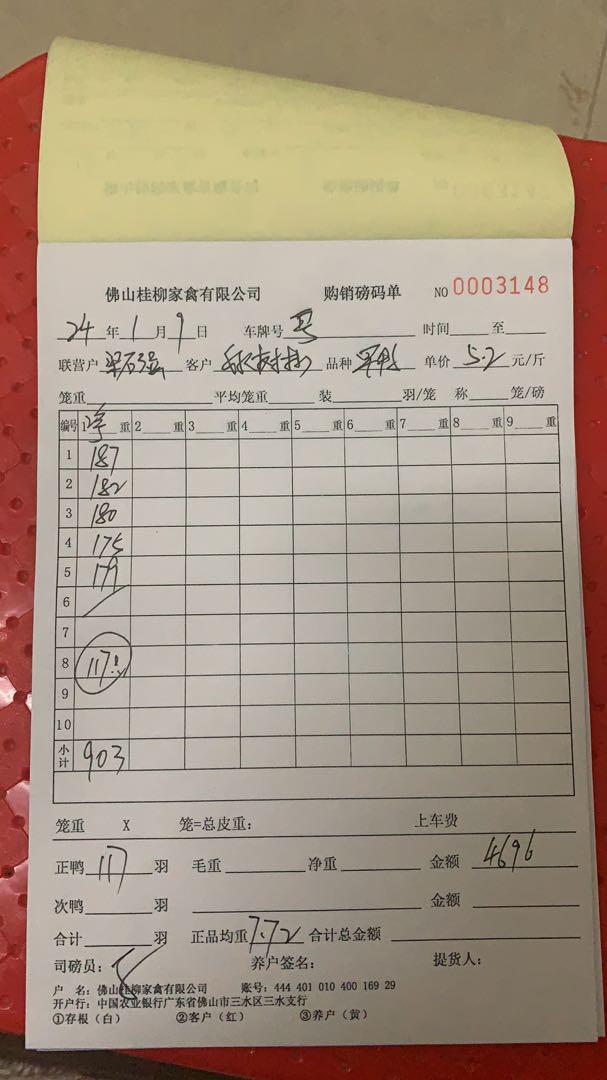 佛山桂柳家禽有限公司 购销磅码单 NO 0003148
24 年 1 月 9 日 车牌号 时间 至
联营户 客户 品种 单价 5.2 元/斤
笼重 平均笼重 装 羽/笼 称 笼/磅
编号 1 净 重 2 重 3 重 4 重 5 重 6 重 7 重 8 重 9 重
1 187
2 182
3 180
4 175
5 179
6
7
8 117
9
10
小计 903
笼重 X 笼=总皮重: 上车费
正鸭 117 羽 毛重 净重 金额 4696
次鸭 羽 金额
合计 羽 正品均重 7.72 合计总金额
司磅员: 养户签名: 提货人:
户 名: 佛山桂柳家禽有限公司 账号: 444 401 010 400 169 29
开户行: 中国农业银行广东省佛山市三水区三水支行
①存根(白) ②客户(红) ③养户(黄)